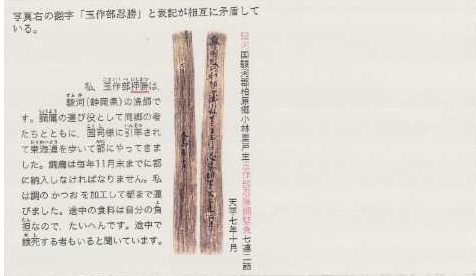 写真右の翻字「玉作部忍勝」と表記が相互に矛盾して
いる。
私、玉作部押勝は、
駿河(静岡県)の漁師で
す。調庸の運び役として同郷の者
たちとともに、国司様に引率され
て東海道を歩いて都にやってきま
した。調庸は毎年11月末までに都
に納入しなければなりません。私
は調のかつおを加工して都まで運
びました。途中の食料は自分の負
担なので、たいへんです。途中で
餓死する者もいると聞いています。
駿河国駿河郡柏原郷小林里戸主玉作部忍勝調堅魚七連二節
天平七年十月